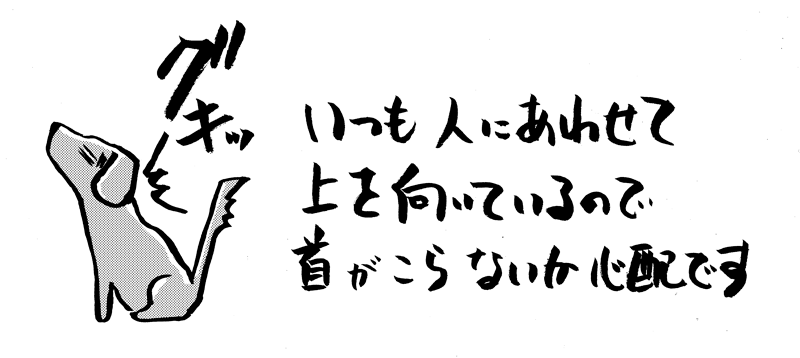 グキッ
いつも人にあわせて
上を向いているので
首がこらないか心配です